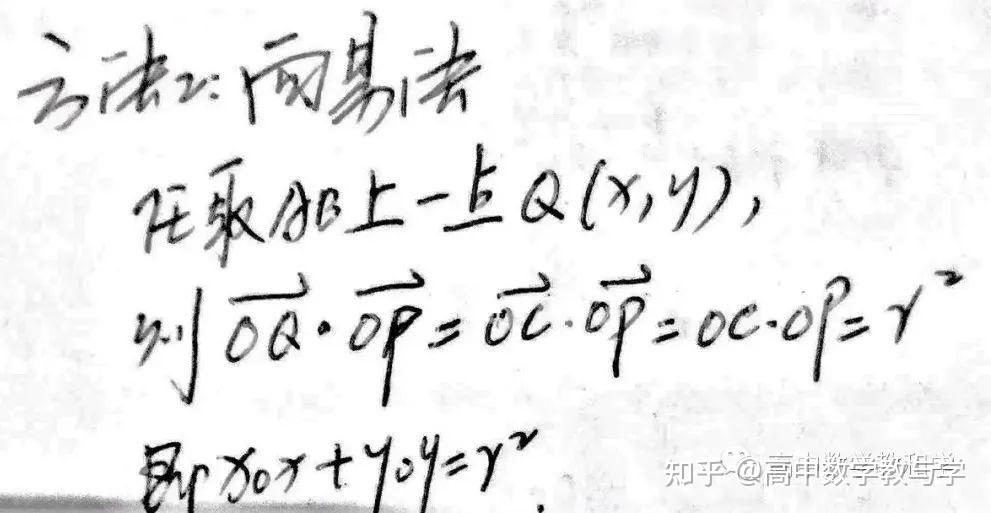 方法2: 简易法
任取AB上一点Q(x,y),
则 $\overrightarrow{OQ}\cdot\overrightarrow{OP}=\overrightarrow{OC}\cdot\overrightarrow{OP}=OC\cdot OP=r^2$
即 $x_0x+y_0y=r^2$.
知乎 @高中数学教与学